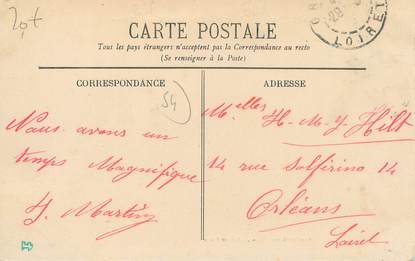 20,+
CARTE POSTALE
Tous les pays étrangers n'acceptent pas la Correspondance au recto
(Se renseigner à la Poste)
CORRESPONDANCE
54
Nous avons un
temps Magnifique
J. Martin
ADRESSE
Melles H-M-Y Hilt
14 rue Solférino 14
Orléans
Loiret
LOIRET
28